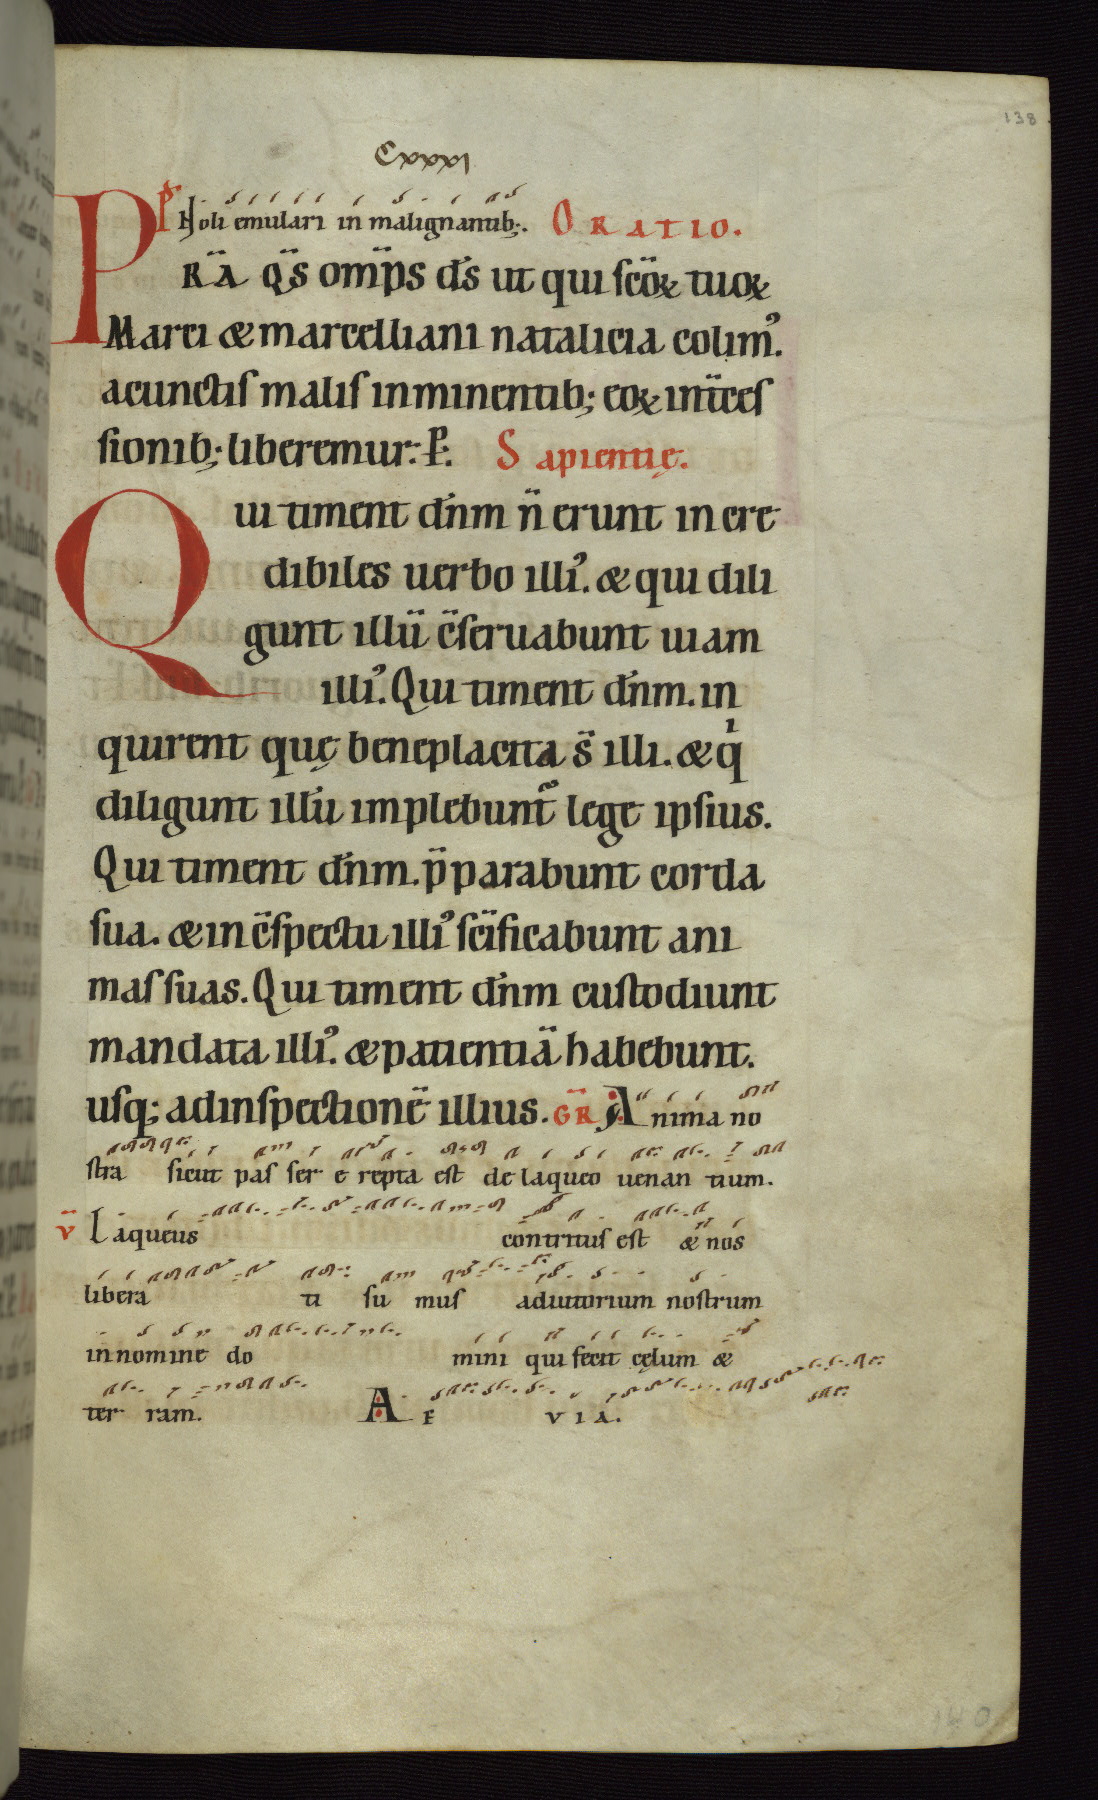 138
Cxxxi
Ps Noli emulari in malignantib;. ORATIO.
PRA̅ Q̅S om̅ps d̅s ut qui sc̅oꝝ tuoꝝ
Marci & marcelliani natalicia colimꝰ.
acunctis malis inminentib; eoꝝ int̅ces
sionib; liberemur: P. Sapientię.
Qui timent dn̅m n̅ erunt incre
dibiles uerbo illiꝰ. & qui dili
gunt illu̅ c̅seruabunt uiam
illiꝰ. Qui timent dn̅m. in
quirent quę beneplacita s̅ illi. & qͥ
diligunt illu̅ implebunt̅ lege ipsius.
Qui timent dn̅m. p̅parabunt corda
sua. & in c̅spectu illiꝰ sc̅ificabunt ani
mas suas. Qui timent dn̅m custodiunt
mandata illiꝰ. & patientia̅ habebunt.
usq; ad inspectione̅ illius. GR̅ Anima no
stra sicut passer erepta est de laqueo uenantium.
V̅ Laqueus contritus est & nos
liberati sumus adiutorium nostrum
in nomine domini qui fecit cęlum &
terram. AEVIA.
140